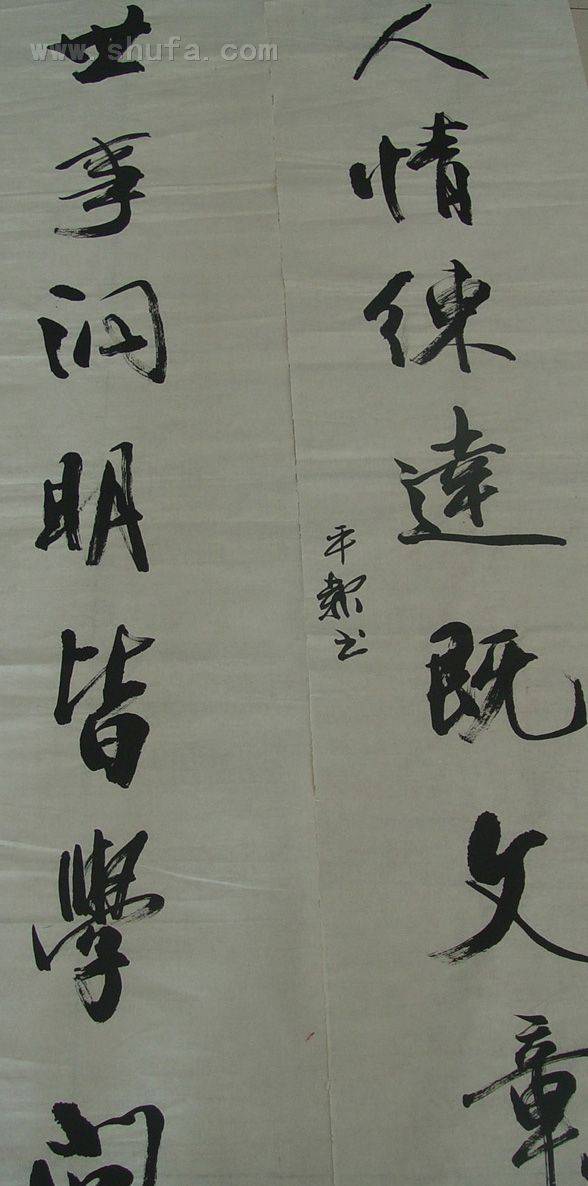 www.shufa.com
世事洞明皆學問
人情練達既文章
平書